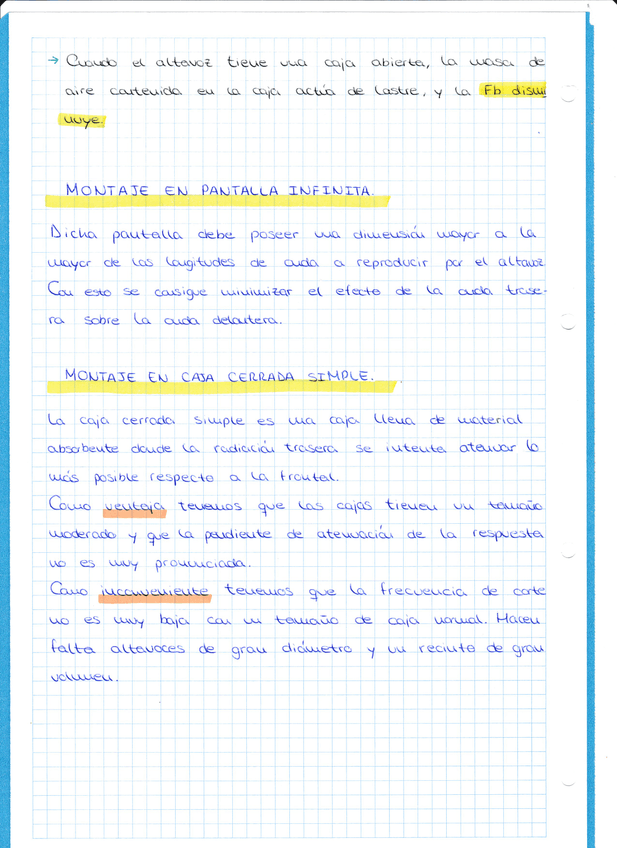 → Cuando el altavoz tiene una caja abierta, la masa de
aire contenida en la caja actúa de lastre, y la Fb dismi
nuye.
MONTAJE EN PANTALLA INFINITA.
Dicha pantalla debe poseer una dimensión mayor a la
mayor de las longitudes de onda a reproducir por el altavoz.
Con esto se consigue minimizar el efecto de la onda trase-
ra sobre la onda delantera.
MONTAJE EN CAJA CERRADA SIMPLE.
La caja cerrada simple es una caja llena de material
absorbente donde la radiación trasera se intenta atenuar lo
más posible respecto a la frontal.
Como ventaja tenemos que las cajas tienen un tamaño
moderado y que la pendiente de atenuación de la respuesta
no es muy pronunciada.
Como inconveniente tenemos que la frecuencia de corte
no es muy baja con un tamaño de caja normal. Hacen
falta altavoces de gran diámetro y un recinto de gran
volumen.